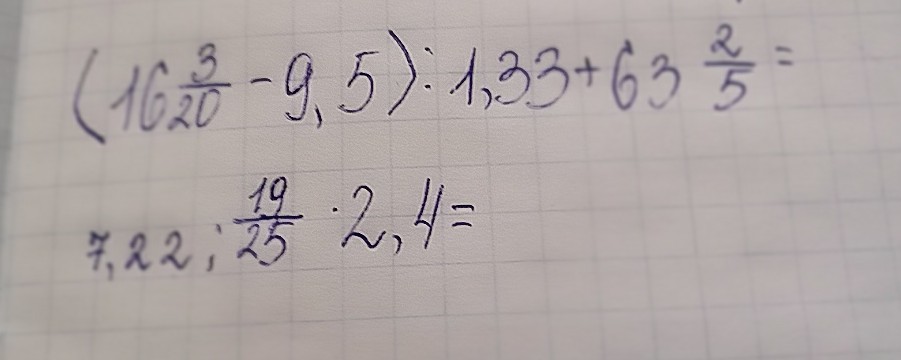 (16 3/20 - 9,5) : 1,33 + 63 2/5 =
7,22 : 19/25 · 2,4 =